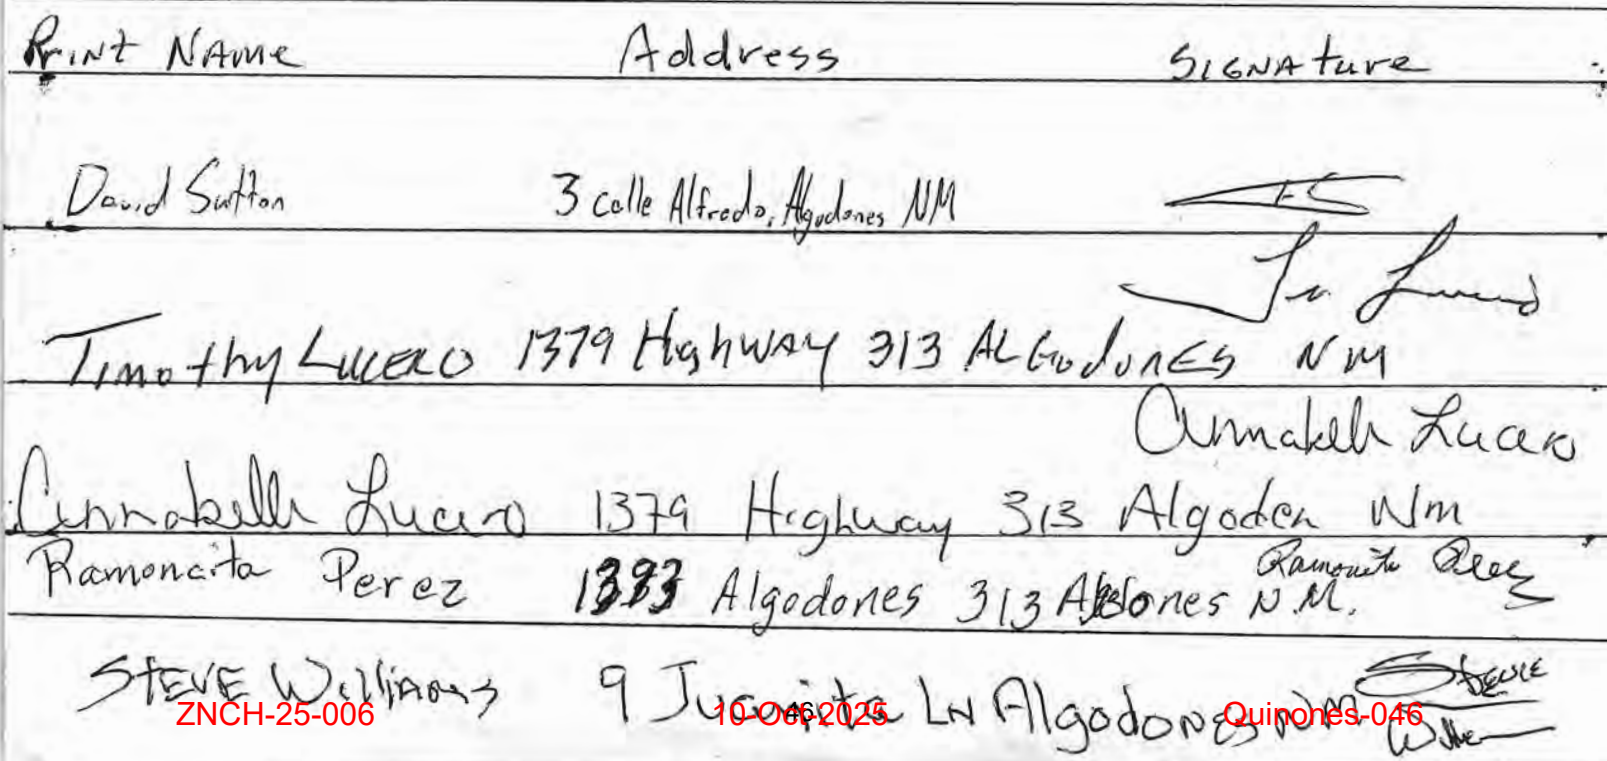 Print Name Address Signature
David Sutton 3 calle Alfredo, Algodones NM
Timothy Lucero 1379 Highway 313 Algodones NM
Annabelle Lucero
Annabelle Lucero 1379 Highway 313 Algoden Nm
Ramoncita Perez 1383 Algodones 313 Algodones N.M. Ramoncita Perez
Steve Williams 9 Juanita Ln Algodones NM Steve
ZNCH-25-006 10-Oct-2025 Quinones-046
46